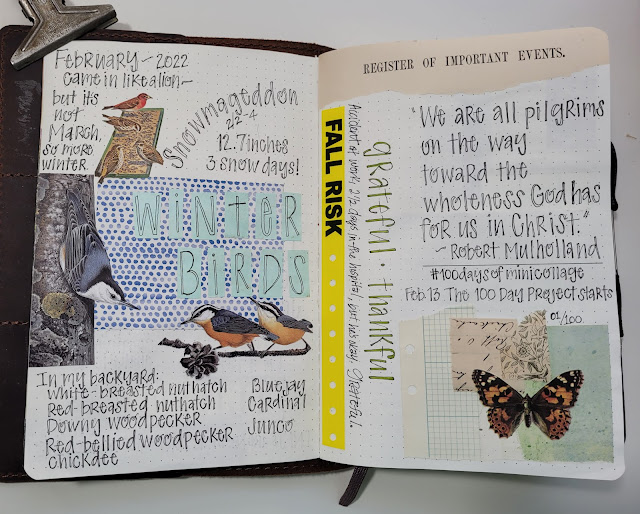 February ~ 2022
Came in like a lion ~
but it's
not
March,
so more
winter.
Snowmageddon
2/2-4
12.7 inches
3 snow days!
WiNTER
BiRDS
In my backyard:
White-breasted nuthatch
Red-breasted nuthatch
Downy woodpecker
Red-bellied woodpecker
chickdee
Bluejay
Cardinal
Junco
FALL RISK
Accident at work, 2½ days in the hospital, but he's okay. Grateful.
grateful · thankful
REGISTER OF IMPORTANT EVENTS.
"We are all pilgrims
on the way
toward the
wholeness God has
for us in Christ."
~ Robert Mulholland
#100daysofminicollage
Feb 13 The 100 Day Project starts
01/100